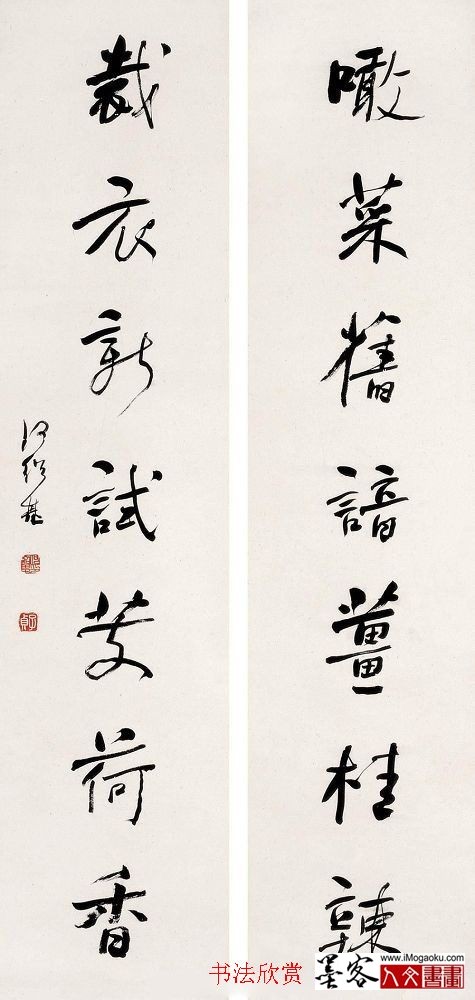 噉菜舊諳薑桂辣
裁衣新試芰荷香
何紹基
子貞
书法欣赏
墨客
www.iMogaoku.com
人文書畫